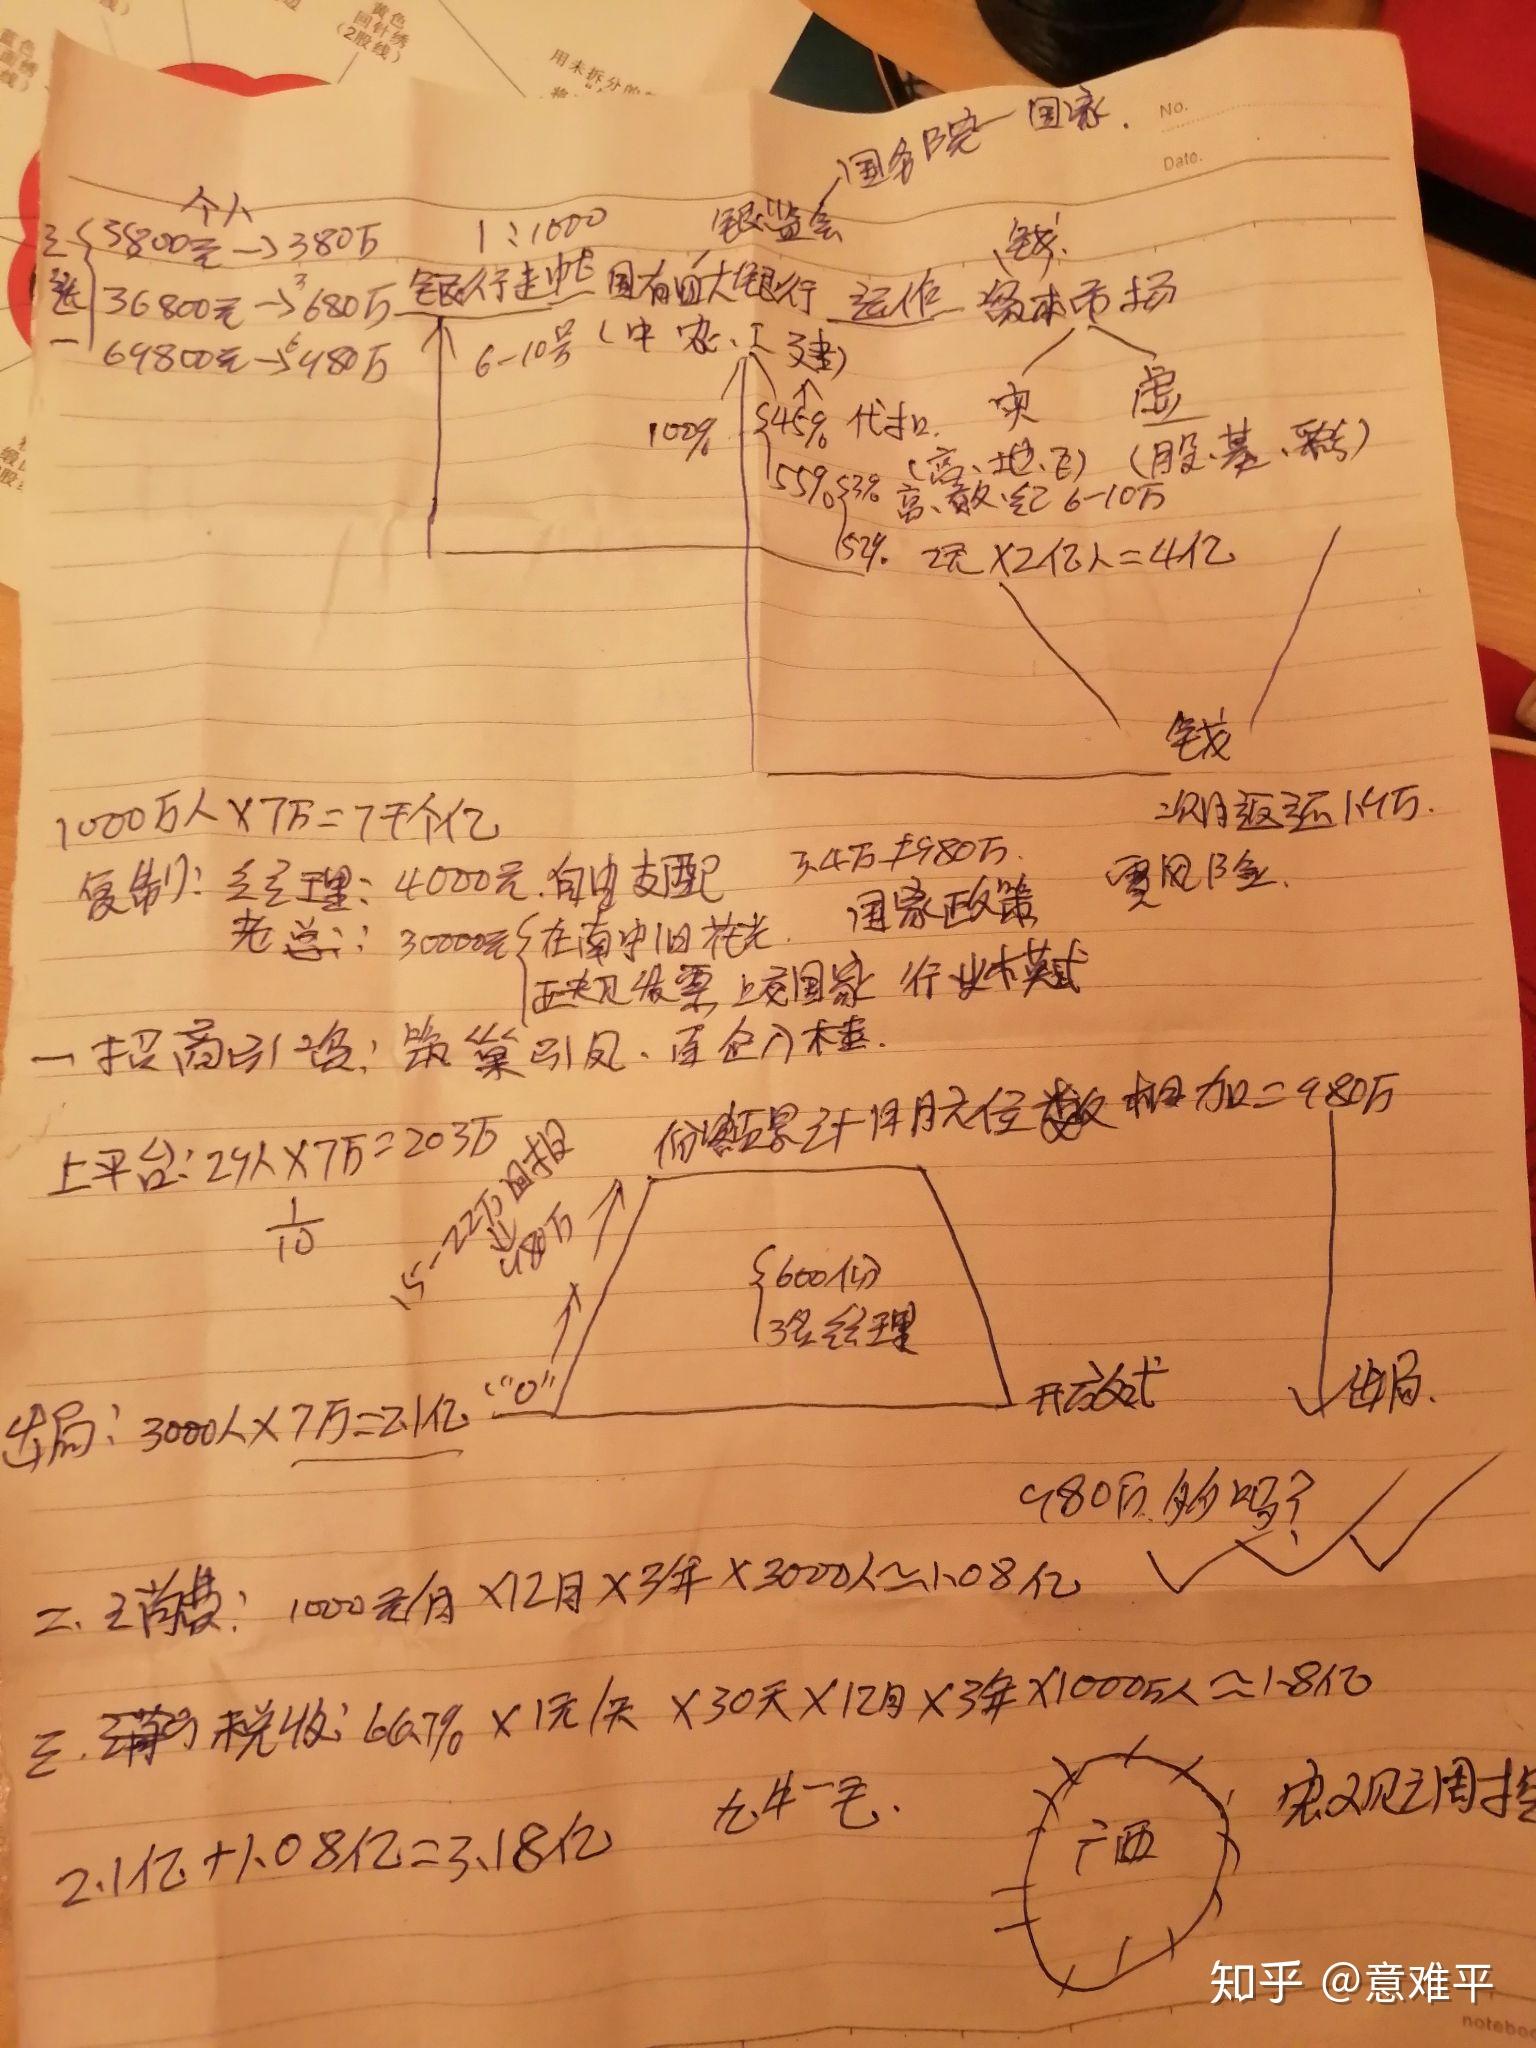 黄色
回针绣
(2股线)
用未拆分的
No.
Date.
国务院一国家.
个人
3800元→380万
1:1000
银监会
钱
三选一
36800元→3680万
银行走帐 国有四大银行 运作 资本市场
69800元→6980万
6-10号
(中、农、工、建)
实 虚
100%
45% 代扣.
(高、地、飞) (股、基、彩)
55%
3% 6-10万
52% 2元×2亿人=4亿
钱
次月返还1.9万.
1000万人×7万=7千个亿
3.4万≠980万.
零风险.
复制: 经理: 4000元.自由支配
国家政策
老总: 30000元 在南宁旧花光.
正规发票上交国家 行业木模式
一招商引资: 筑巢引凤、百企入桂.
上平台: 29人×7万=203万
1/10
份额累计 相加=980万
15-22万回报
980万
600份
3名经理
"0"
开放式
出局.
出局: 3000人×7万=2.1亿
980万.多吗?
二.消费: 1000元/月×12月×3年×3000人≈1.08亿
三. 税收: 66.7%×1元/天×30天×12月×3年×1000万人≈1.8亿
九牛一毛.
2.1亿+1.08亿=3.18亿
广西
宏观调控
知乎 @意难平
notebook